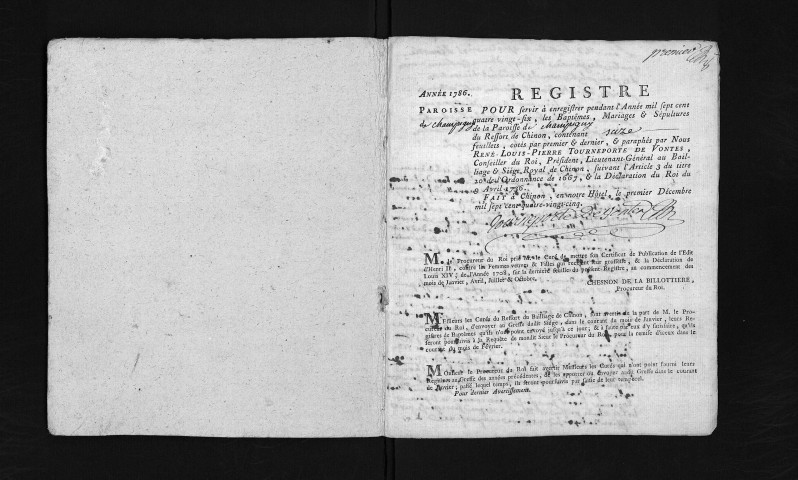 premier
ANNÉE 1786.
REGISTRE
PAROISSE
de champigny
POUR servir à enregistrer pendant l'Année mil sept cent
quatre vingt-six, les Baptêmes, Mariages & Sépultures
de la Paroisse de champigny
du Ressort de Chinon, contenant seize
feuillets, cotés par premier & dernier, & paraphés par Nous
RENÉ-LOUIS-PIERRE TOURNEPORTE DE VONTES,
Conseiller du Roi, Président, Lieutenant-Général au Bail-
liage & Siége Royal de Chinon, suivant l'Article 3 du titre
20 de l'Ordonnance de 1667, & la Déclaration du Roi du
9 Avril 1736.
FAIT à Chinon, en notre Hôtel, le premier Décembre
mil sept cent quatre-vingt-cinq.
Tourneporte De Vontes
M. le Procureur du Roi prie M. le Curé de mettre son Certificat de Publication de l'Edit
d'Henri II, contre les Femmes veuves & Filles qui recelent leur grossesse, & la Déclaration de
Louis XIV, de l'Année 1708, sur la derniere feuille du présent Registre, au commencement des
mois de Janvier, Avril, Juillet & Octobre.
CHESNON DE LA BILLOTTIERE,
Procureur du Roi.
MESsieurs les Curés du Ressort du Bailliage de Chinon, sont avertis de la part de M. le Pro-
cureur du Roi, d'envoyer au Greffe dudit Siége, dans le courant du mois de Janvier, leurs Re-
gistres de Baptêmes qu'ils n'ont point envoyé jusqu'à ce jour; & à faute par eux d'y satisfaire, qu'ils
seront poursuivis à la Requête de mondit Sieur le Procureur du Roi, pour la remise d'iceux dans le
courant du mois de Février.
MOnsieur le Procureur du Roi fait avertir Messieurs les Curés qui n'ont point fourni leurs
Registres au Greffe des années précédentes, de les apporter ou envoyer audit Greffe dans le courant
de Janvier; passé lequel temps, ils seront poursuivis par saisie de leur temporel.
Pour dernier Avertissement.